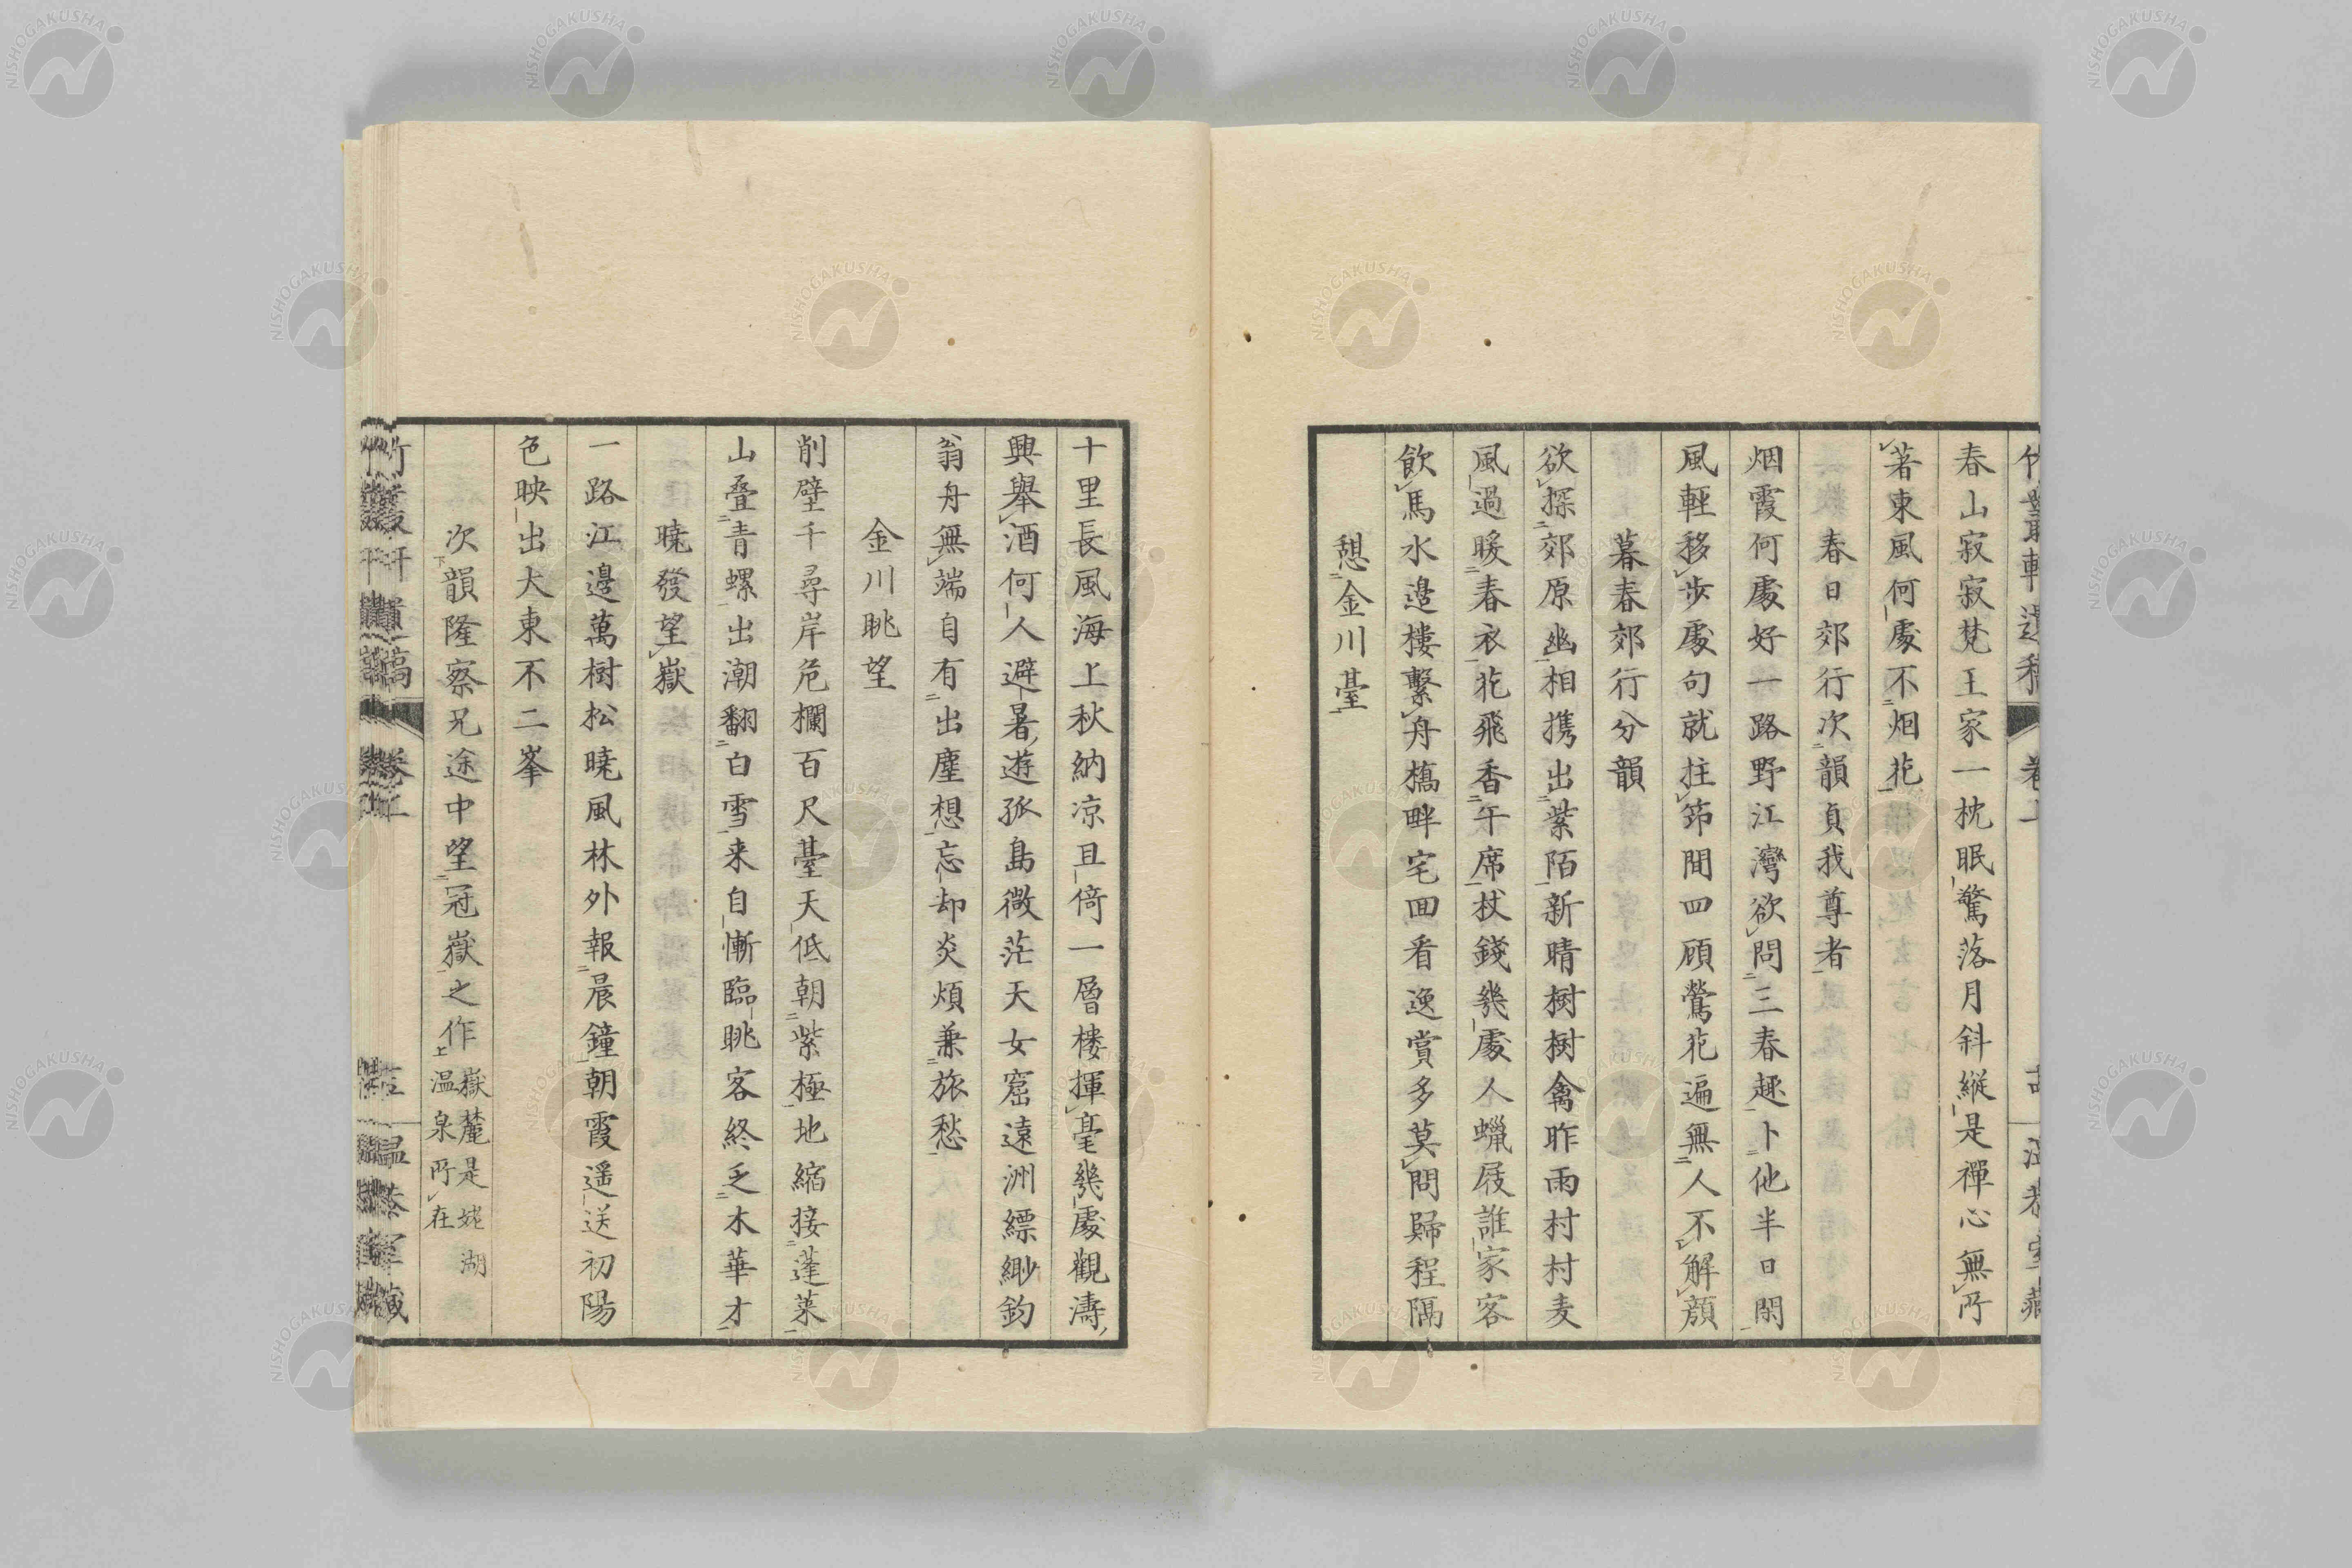 春山寂寂梵王家一枕眠驚落月斜縦是禪心無所
著東風何處不烟花
春日郊行次韻貞我尊者
烟霞何處好一路野江灣欲問三春趣卜他半日閑
風輕移歩處句就拄筇間四顧鶯花遍無人不解顔
暮春郊行分韻
欲探郊原幽相携出紫陌新晴樹樹禽昨雨村村麦
風過暖春衣花飛香午席杖錢幾處人蠟屐誰家客
飲馬水邉樓繋舟橋畔宅回看逸賞多莫問歸程隔
憩金川臺
十里長風海上秋納凉且倚一層楼揮毫幾處觀濤
興舉酒何人避暑遊孤島微茫天女窟遠洲縹緲釣
翁舟無端自有出塵想忘却炎煩兼旅愁
金川眺望
削壁千尋岸危欄百尺臺天低朝紫極地縮接蓬莱
山叠青螺出潮翻白雪来自慚臨眺客終乏木華才
曉發望嶽
一路江邉萬樹松曉風林外報晨鐘朝霞遥送初陽
色映出大東不二峯
次韻隆察兄途中望冠嶽之作 嶽麓是姥湖
温泉所在
NISHOGAKUSHA